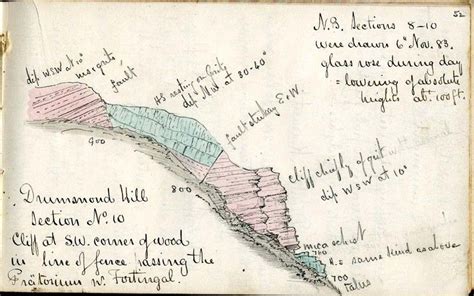 52
N.B. Sections 8-10
were drawn 6th Nov. 83.
glass rose during day
= lowering of absolute
heights abt. 100 ft.
dip WSW at 10°
mica grit
fault
H.S resting on grits
dip NW at 30-40°
fault striking E & W.
900
800
Cliff chiefly of grit
dip WSW at 10°
Drummond Hill
Section No. 10
Cliff at S.W. corner of wood
in line of fence passing the
Prætorium nr. Fortingal.
mica schist
760
H.S same kind as above
700
talus